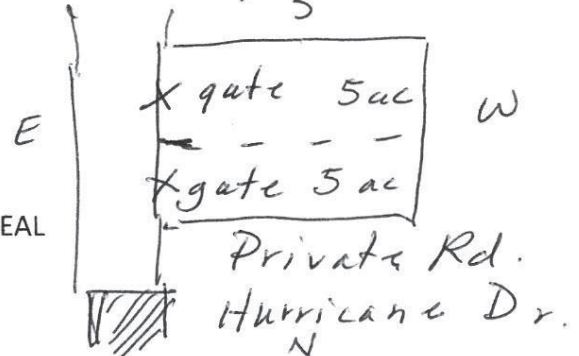 S
X gate 5 ac
E W
X gate 5 ac
EAL
Private Rd.
Hurricane Dr.
N